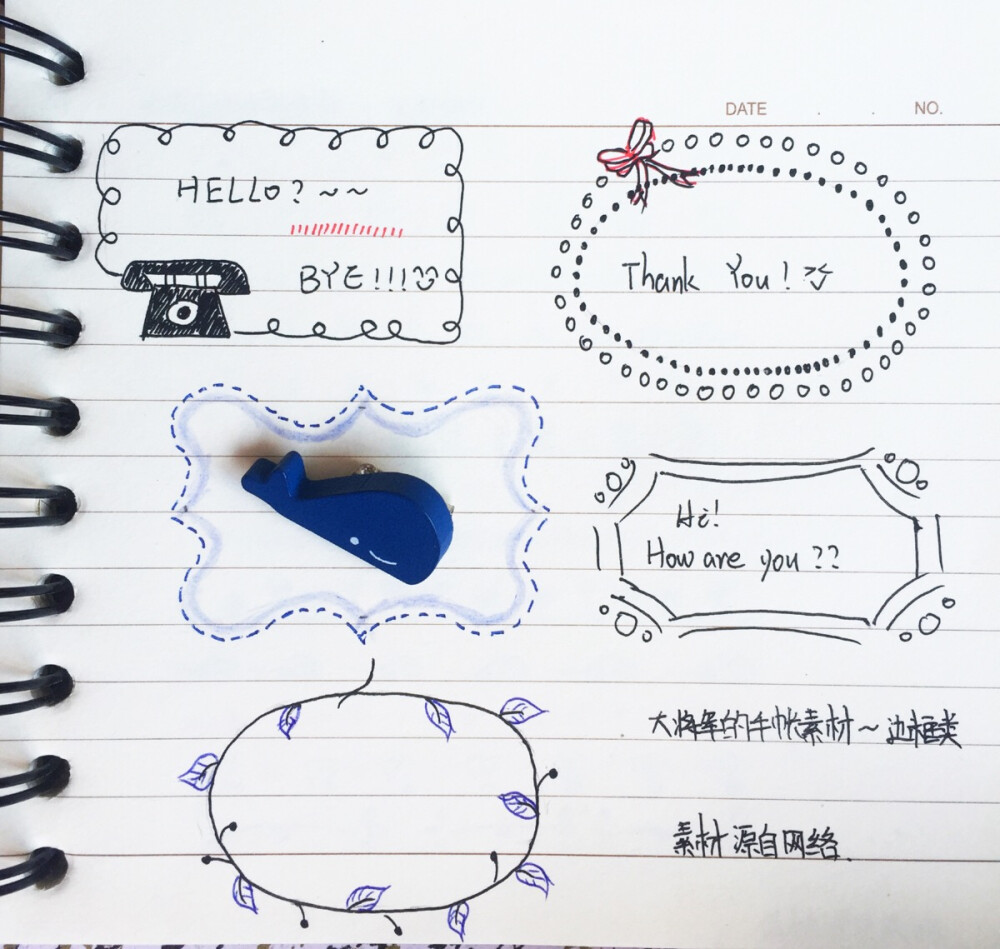 DATE . . NO.
HELLO? ~~
BYE!!!
Thank You!
Hi!
How are you ??
大将军的手帐素材~边框类
素材源自网络.